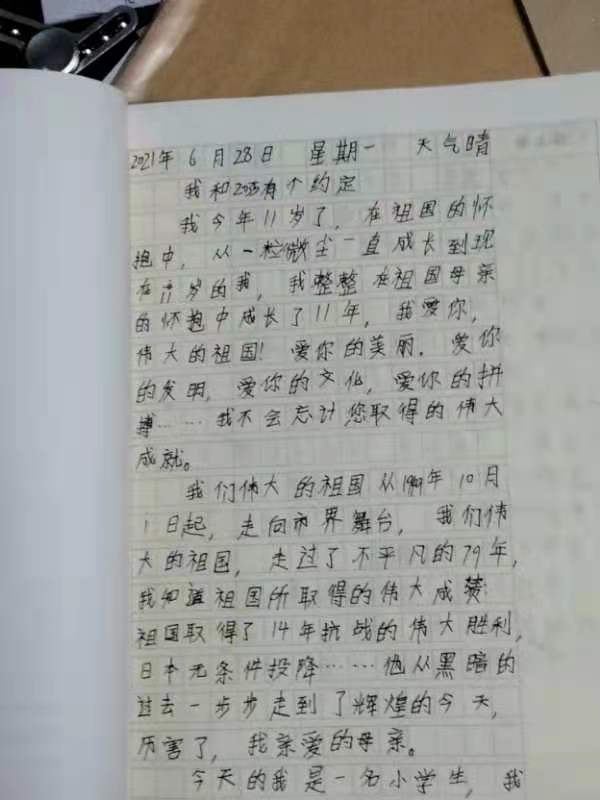 2021年6月28日 星期一 天气晴
我和2035有个约定
我今年11岁了，在祖国的怀
抱中，从一粒微尘一直成长到现
在11岁的我，我整整在祖国母亲
的怀抱中成长了11年，我爱你，
伟大的祖国！爱你的美丽．爱你
的发明，爱你的文化，爱你的拼
搏……我不会忘记您取得的伟大
成就。
我们伟大的祖国从1949年10月
1日起，走向市界舞台，我们伟
大的祖国，走过了不平凡的79年，
我知道祖国所取得的伟大成
祖国取得了14年抗战的伟大胜利，
日本无条件投降……他从黑暗的
过去一步步走到了辉煌的今天，
厉害了，我亲爱的母亲。
今天的我是一名小学生，我